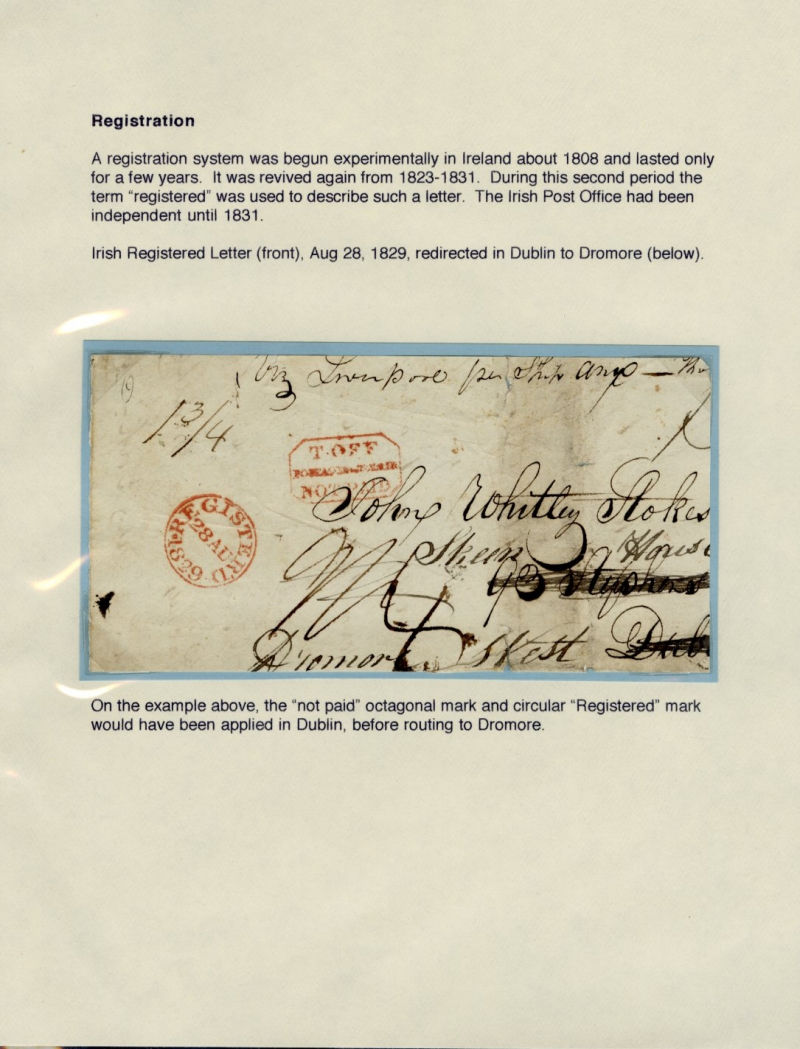 Registration
A registration system was begun experimentally in Ireland about 1808 and lasted only
for a few years. It was revived again from 1823-1831. During this second period the
term “registered” was used to describe such a letter. The Irish Post Office had been
independent until 1831.
Irish Registered Letter (front), Aug 28, 1829, redirected in Dublin to Dromore (below).
Liverpool per Ship
1 3/4
T·OFF
NOT PAID
John Whitley Stokes
REGISTERD
28 AU
829
Skean House
93 Stephens
Dromore West Dub
On the example above, the “not paid” octagonal mark and circular “Registered” mark
would have been applied in Dublin, before routing to Dromore.